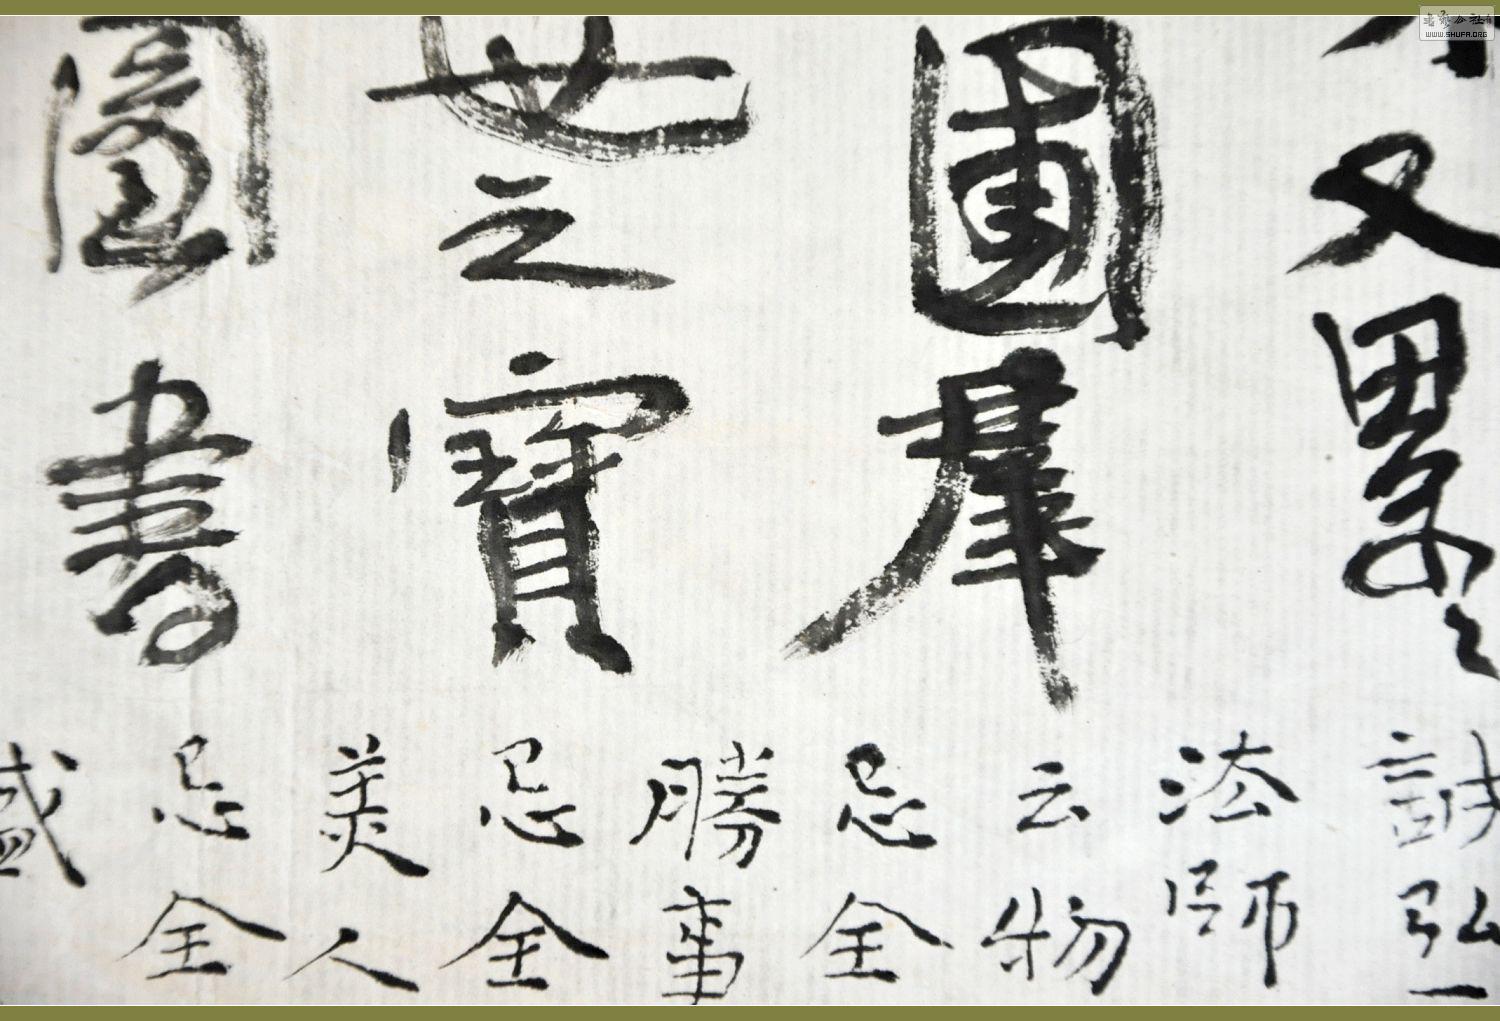 又累
國群
世之寶
圖書
誠弘一
法師
云物
忌全
勝事
忌全
美人
忌全
盛
書法公社
WWW.SHUFA.ORG